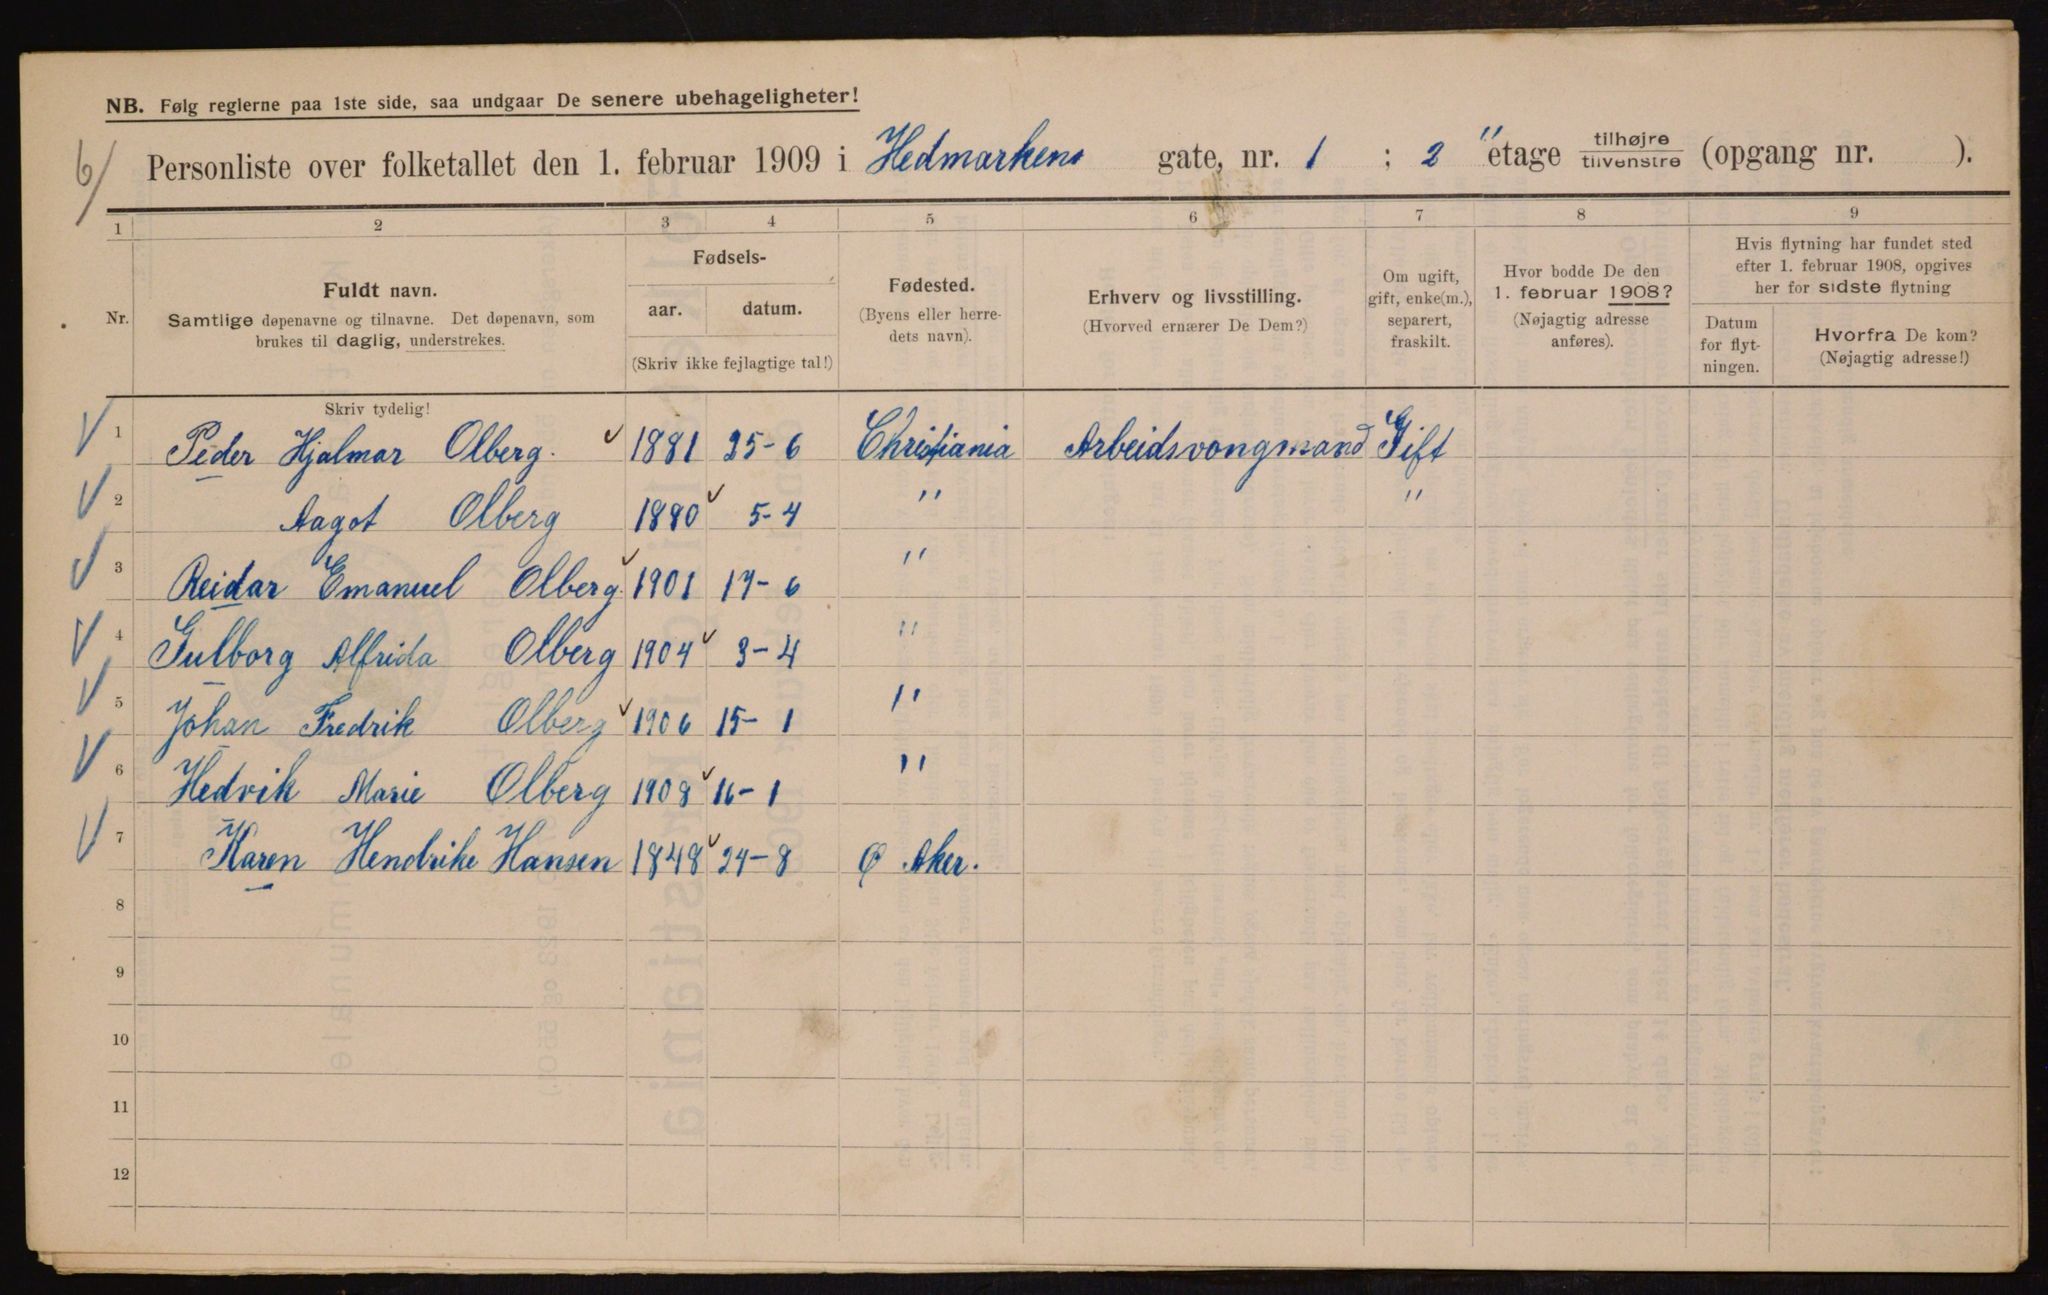 NB. Følg reglerne paa 1ste side, saa undgaar De senere ubehageligheter!
6/
Personliste over folketallet den 1. februar 1909 i Hedmarkens gate, nr. 1 ; 2 " etage tilhøjre tilvenstre (opgang nr. ).
1 2 3 4 5 6 7 8 9
Nr.
Fuldt navn.
Samtlige døpenavne og tilnavne. Det døpenavn, som
brukes til daglig, understrekes.
Fødsels-
aar. datum.
(Skriv ikke fejlagtige tal!)
Fødested.
(Byens eller herre-
dets navn).
Erhverv og livsstilling.
(Hvorved ernærer De Dem?)
Om ugift,
gift, enke(m.),
separert,
fraskilt.
Hvor bodde De den
1. februar 1908?
(Nøjagtig adresse
anføres).
Hvis flytning har fundet sted
efter 1. februar 1908, opgives
her for sidste flytning
Datum
for flyt-
ningen.
Hvorfra De kom?
(Nøjagtig adresse!)
Skriv tydelig!
1 Peder Hjalmar Olberg. 1881 25-6 Christiania Arbeidsvongmand Gift
2 Aagot Olberg 1880 5-4 " "
3 Reidar Emanuel Olberg. 1901 17-6 "
4 Gulborg Alfrida Olberg 1904 3-4 "
5 Johan Fredrik Olberg 1906 15-1 "
6 Hedvik Marie Olberg 1908 16-1 "
7 Karen Hendrike Hansen 1848 24-8 Ø Aker.
8
9
10
11
12